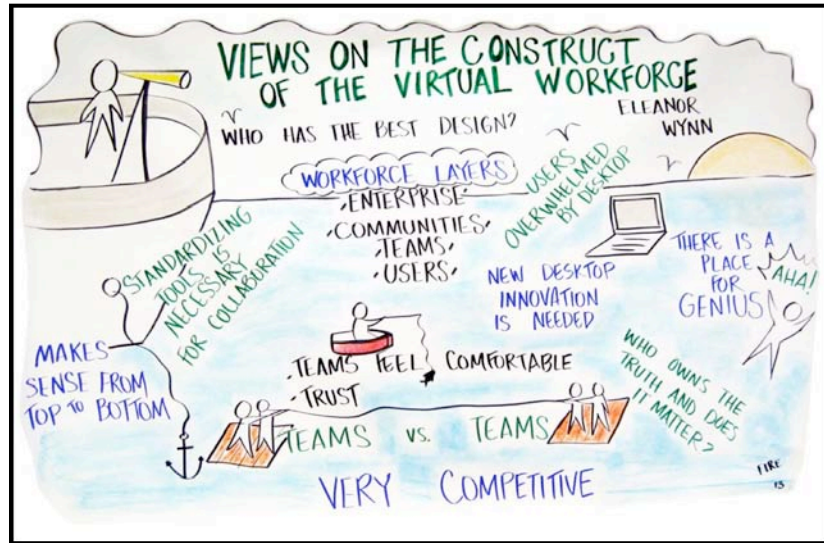 VIEWS ON THE CONSTRUCT
OF THE VIRTUAL WORKFORCE
ELEANOR
WYNN
WHO HAS THE BEST DESIGN?
WORKFORCE LAYERS
ENTERPRISE
COMMUNITIES
TEAMS
USERS
USERS
OVERWHELMED
BY DESKTOP
STANDARDIZING
TOOLS IS
NECESSARY
FOR COLLABORATION
NEW DESKTOP
INNOVATION
IS NEEDED
THERE IS A
PLACE
FOR
GENIUS
AHA!
MAKES
SENSE FROM
TOP TO BOTTOM
TEAMS FEEL COMFORTABLE
TRUST
WHO OWNS THE
TRUTH AND DOES
IT MATTER?
TEAMS VS. TEAMS
VERY COMPETITIVE
FIRE
13